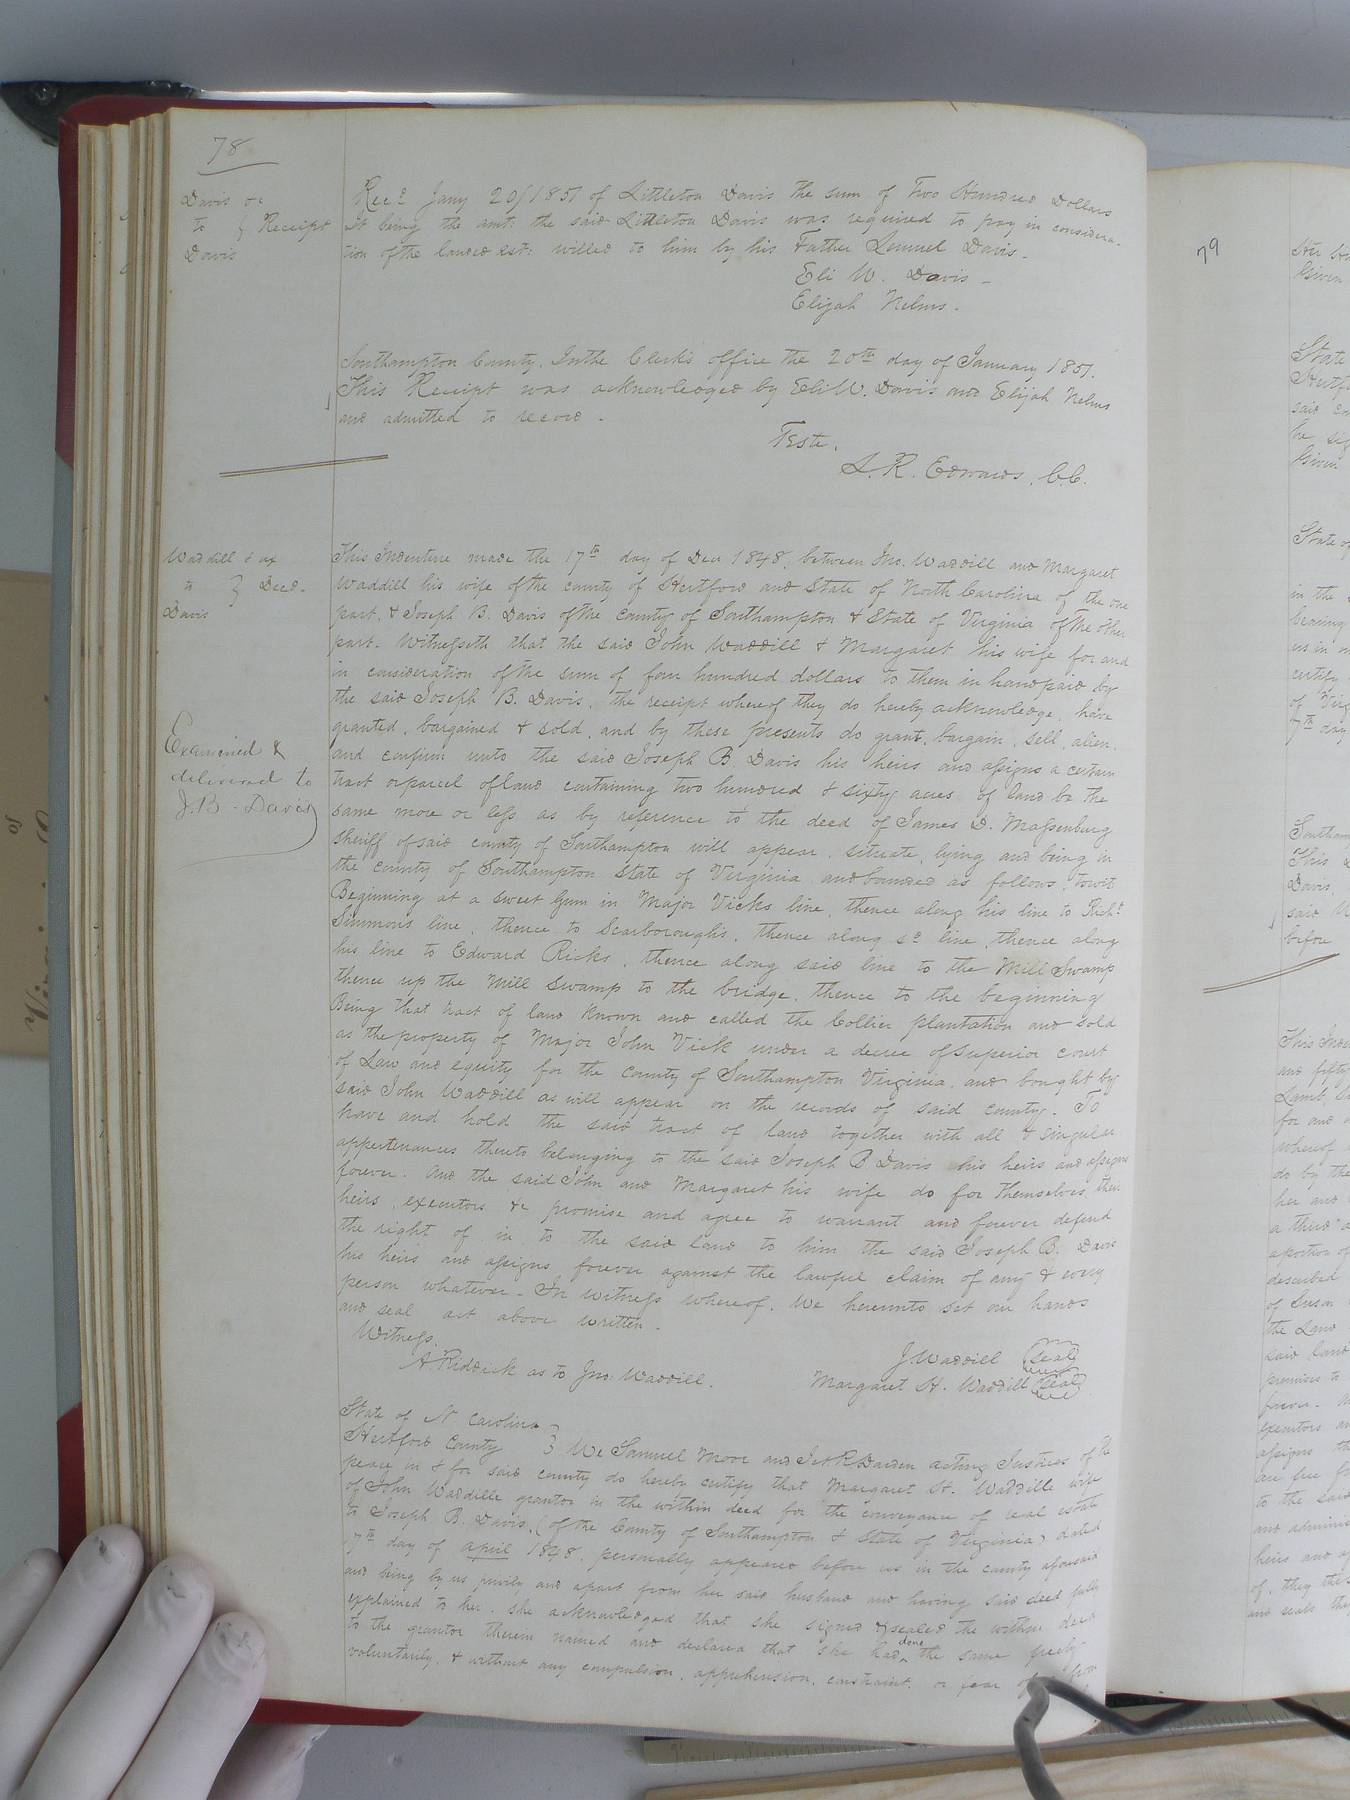 78
Davis &c
to } Receipt
Davis
Recd Jany 20/1851 of Littleton Davis the sum of Two Hundred Dollars
It being the amt: the said Littleton Davis was required to pay in considera-
tion of the landed est: willed to him by his Father Lemuel Davis.
Eli W. Davis
Elijah Nelms.
Southampton County. In the Clerk's office the 20th day of January 1851.
This Receipt was acknowledged by Eli W. Davis and Elijah Nelms
and admitted to record.
Teste.
L. R. Edwards, C.C.
Waddill & ux
to } Deed.
Davis
Examined &
delivered to
J.B. Davis
This Indenture made the 17th day of Dec 1848, between Jno. Waddill and Margaret
Waddill his wife of the county of Hertford and State of North Carolina of the one
part, & Joseph B. Davis of the County of Southampton & State of Virginia of the other
part. Witnesseth that the said John Waddill & Margaret his wife for and
in consideration of the sum of four hundred dollars to them in hand paid by
the said Joseph B. Davis, the receipt whereof they do hereby acknowledge, have
granted, bargained & sold, and by these presents do grant, bargain, sell, alien,
and confirm unto the said Joseph B. Davis his heirs and assigns a certain
tract or parcel of land containing two hundred & sixty acres of land be the
same more or less as by reference to the deed of James D. Massenburg
Sheriff of said county of Southampton will appear, situate, lying and being in
the county of Southampton State of Virginia and bounded as follows, towit
Beginning at a sweet Gum in Major Vicks line, thence along his line to Richd
Simmons line, thence to Scarboroughs, thence along sd line, thence along
his line to Edward Ricks, thence along said line to the Mill Swamp
thence up the Mill Swamp to the bridge, thence to the beginning
Being that tract of land known and called the Collier plantation and sold
as the property of Major John Vick under a decree of Superior court
of Law and equity for the County of Southampton Virginia, and bought by
said John Waddill as will appear on the records of said county. To
have and hold the said tract of land together with all & singular
appertenances thereto belonging to the said Joseph B Davis his heirs and assigns
forever. And the said John and Margaret his wife do for themselves, their
heirs, executors &c promise and agree to warrant and forever defend
the right of in to the said land to him the said Joseph B. Davis
his heirs and assigns forever against the lawful claim of any & every
person whatever. In witness whereof, We hereunto set our hands
and seal as above written.
Witness.
A Riddick as to Jno. Waddill.
J. Waddill (seal)
Margaret H. Waddill (seal)
State of N Carolina
Hertford County } We Samuel Moor and Jet R Darden acting Justices of the
peace in & for said county do hereby certify that Margaret H. Waddille wife
of John Waddille grantor in the within deed for the conveyance of real estate
to Joseph B. Davis, (of the County of Southampton & State of Virginia) dated
17th day of april 1848. personally appeared before us in the county aforesaid
and being by us privily and apart from her said husband and having said deed fully
explained to her. She acknowledged that she signed & sealed the within deed
to the grantor therein named and declared that she had done the same freely
voluntarily, & without any compulsion, apprehension, constraint, or fear of from
79
State
said
Given
State of
in the
bearing
us in
certify
of Virg
7th day
Southam
This
Davis,
said
before
This Inde
and fifty
Lamb,
for and
whereof
do by the
her and
a third
a portion of
described
of Susan
the Land
said land
premises to
forever.
executors an
assigns
are free
to the said
and adminis
heirs and
of, they
and seals they